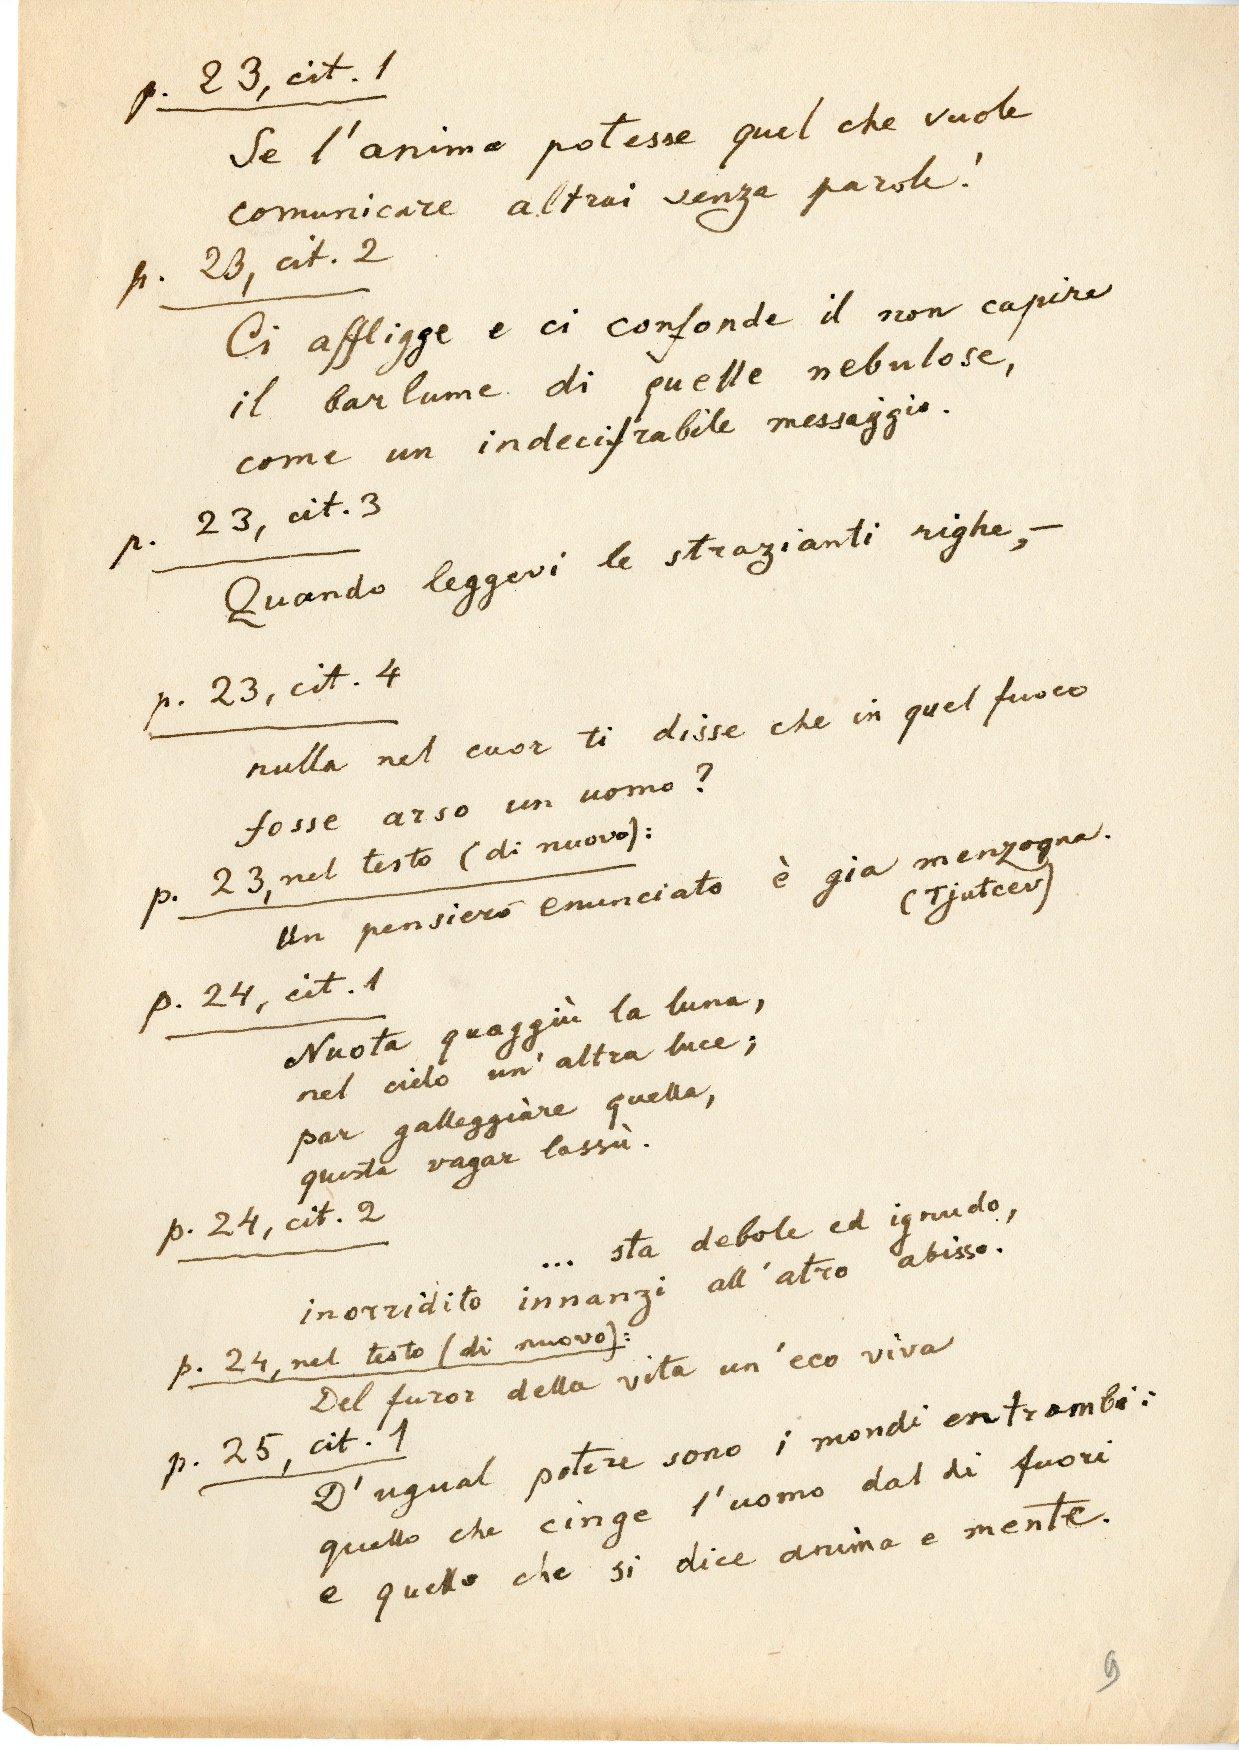 p. 23, cit. 1
Se l'anima potesse quel che vuole
comunicare altrui senza parole!
p. 23, cit. 2
Ci affligge e ci confonde il non capire
il barlume di quelle nebulose,
come un indecifrabile messaggio.
p. 23, cit. 3
Quando leggevi le strazianti righe, –
p. 23, cit. 4
nulla nel cuor ti disse che in quel fuoco
fosse arso un uomo?
p. 23, nel testo (di nuovo):
Un pensiero enunciato è gia menzogna.
(Tjutcev)
p. 24, cit. 1
Nuota quaggiù la luna,
nel cielo un'altra luce;
par galleggiare quella,
questa vagar lassù.
p. 24, cit. 2
... sta debole ed ignudo,
inorridito innanzi all'atro abisso.
p. 24, nel testo (di nuovo):
Del furor della vita un'eco viva
p. 25, cit. 1
D'ugual potere sono i mondi entrambi:
quello che cinge l'uomo dal di fuori
e quello che si dice anima e mente.
9